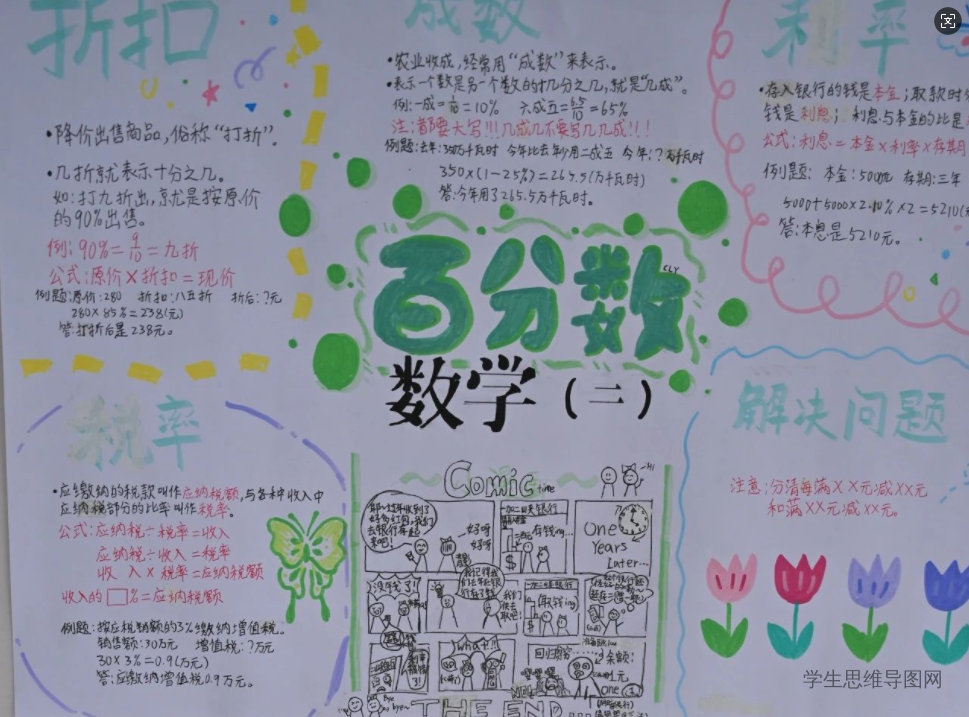 折扣
•降价出售商品,俗称“打折”。
•几折就表示十分之几。
如:打九折出,就是按原价
的90%出售。
例:90%=9/10=九折
公式:原价×折扣=现价
例题:原价:280 折扣:八五折 折后:?元
280×85%=238(元)
答:打折后是238元。
成数
•农业收成,经常用“成数”来表示。
•表示一个数是另一个数的十分之几,就是“几成”。
例:一成=1/10=10% 六成五=6.5/10=65%
注:都要大写!!!几成几不要写几几成!!!
例题:去年:350万千瓦时 今年比去年少用二成五 今年:?万千瓦时
350×(1-25%)=
答:今年用了265.5万千瓦时。
利率
•存入银行的钱是本金;取款时
钱是利息;利息与本金的比是
公式:利息=本金×利率×存期
例题: 本金:5000元 存期:三年
5000+5000×2.10%×2=5210
答:本息是5210元。
百分数
CLY
数学(二)
税率
•应缴纳的税款叫作应纳税额,与各种收入中
应纳税部分的比率叫作税率。
公式:应纳税÷税率=收入
应纳税÷收入=税率
收 入×税率=应纳税额
收入的□%=应纳税额
例题:按应税销额的3%缴纳增值税。
销售额:30万元 增值税:?万元
30×3%=0.9(万元)
答:应缴纳增值税0.9万元。
Comic time
Hi
好呀
好呀
存钱ing
One
Years
Later...
没钱了!
取钱ing
What!!
余额:
1元
one
bye
bye~
THE END
解决问题
注意:分清每满××元减××元
和满××元减××元。
学生思维导图网